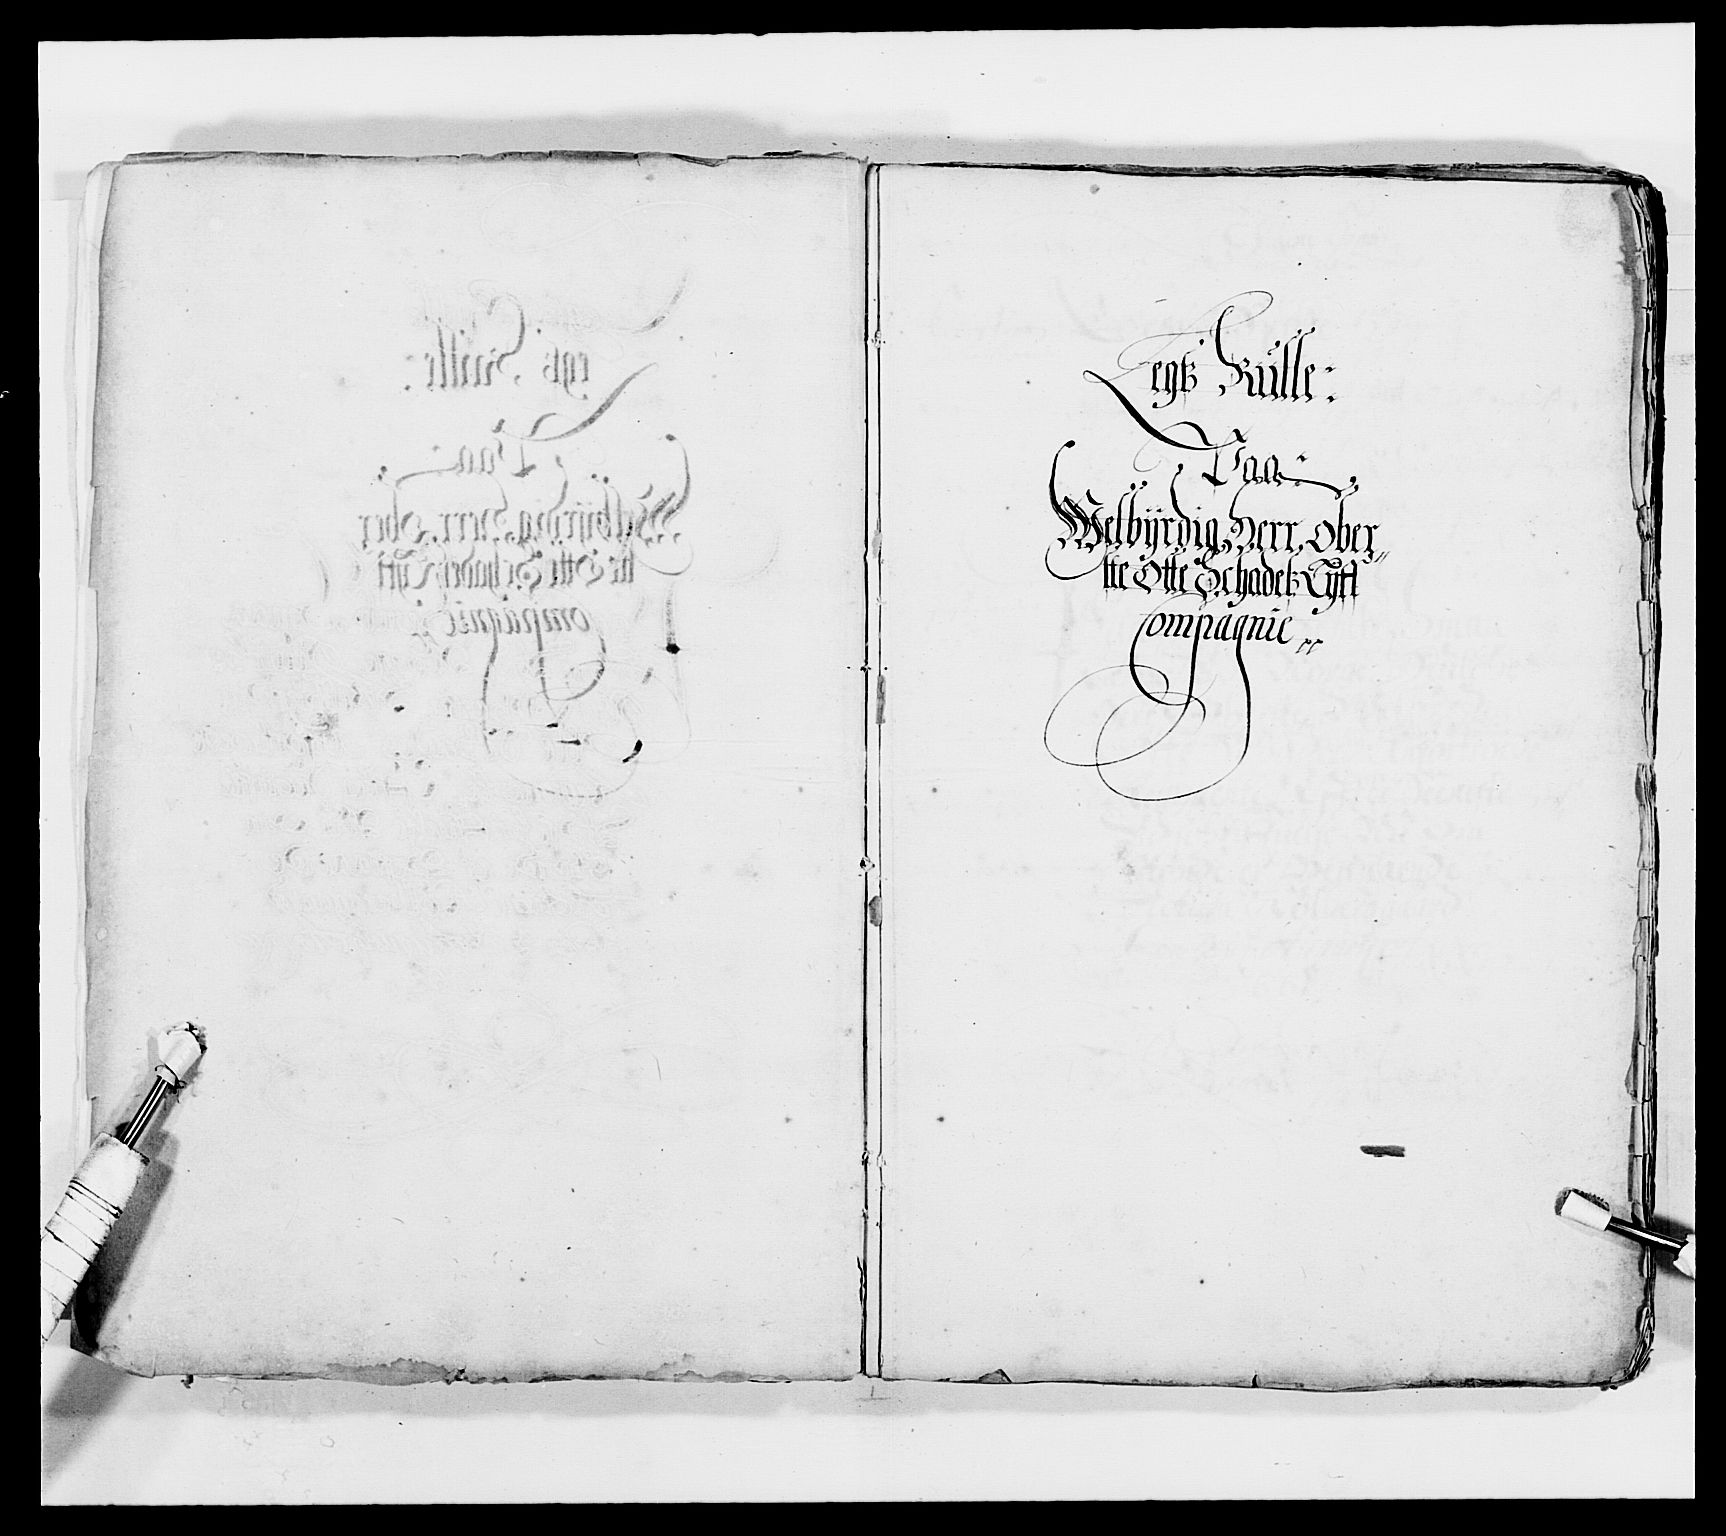 Legtz Rülle:
Paa:
Welbÿrdig, Herr, Ober„
ste Otte Schadetz Lÿft
Compagnie